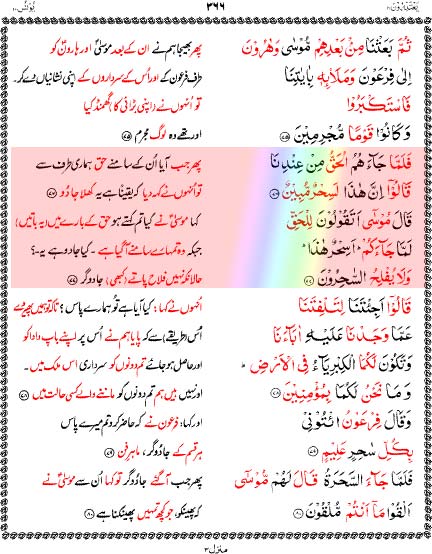 يَعْتَذِرُوْنَ ۱۱
۳۶۶
يُوْنُس ۱۰
ثُمَّ بَعَثْنَا مِنْۢ بَعْدِهِمْ مُّوْسٰى وَهٰرُوْنَ
پھر بھیجا ہم نے ان کے بعد موسیٰؑ اور ہارونؑ کو
اِلٰى فِرْعَوْنَ وَمَلَا۟ئِهٖ بِاٰيٰتِنَا
طرف فرعون کے اور اُس کے سرداروں کے اپنی نشانیاں دے کر
فَاسْتَكْبَرُوْا
تو اُنہوں نے (اپنی بڑائی کا) گھمنڈ کیا
وَكَانُوْا قَوْمًا مُّجْرِمِيْنَ ﴿۷۵﴾
اور تھے وہ لوگ مجرم ﴿۷۵﴾
فَلَمَّا جَآءَهُمُ الْحَقُّ مِنْ عِنْدِنَا
پھر جب آیا اُن کے سامنے حق ہماری طرف سے
قَالُوْٓا اِنَّ هٰذَا لَسِحْرٌ مُّبِيْنٌ ﴿۷۶﴾
تو اُنہوں نے کہہ دیا کہ یقیناً ہے یہ کھلا جادو ﴿۷۶﴾
قَالَ مُوْسٰٓى اَتَقُوْلُوْنَ لِلْحَقِّ
کہا موسیٰؑ نے کیا تم کہتے ہو حق کے بارے میں (یہ باتیں)
لَمَّا جَآءَكُمْ ؕ اَسِحْرٌ هٰذَا ؕ
جبکہ وہ تمہارے سامنے آ گیا ہے۔ کیا جادو ہے یہ؟
وَلَا يُفْلِحُ السّٰحِرُوْنَ ﴿۷۷﴾
حالانکہ نہیں فلاح پاتے (کبھی) جادوگر ﴿۷۷﴾
قَالُوْٓا اَجِئْتَنَا لِتَلْفِتَنَا
اُنہوں نے کہا: کیا آیا ہے تُو ہمارے پاس؟ تاکہ تو ہمیں پھیر دے
عَمَّا وَجَدْنَا عَلَيْهِ اٰبَآءَنَا
اُس (طریقے) سے کہ پایا ہم نے اُس پر اپنے باپ دادا کو
وَتَكُوْنَ لَكُمَا الْكِبْرِيَآءُ فِى الْاَرْضِ ؕ
اور حاصل ہو جائے تم دونوں کو سرداری اس ملک میں۔
وَمَا نَحْنُ لَكُمَا بِمُؤْمِنِيْنَ ﴿۷۸﴾
اور نہیں ہیں ہم تم دونوں کو ماننے والے کسی حالت میں ﴿۷۸﴾
وَقَالَ فِرْعَوْنُ ائْتُوْنِىْ
اور کہا: فرعون نے کہ حاضر کرو تم میرے پاس
بِكُلِّ سٰحِرٍ عَلِيْمٍ ﴿۷۹﴾
ہر قسم کے جادوگر، ماہرِ فن ﴿۷۹﴾
فَلَمَّا جَآءَ السَّحَرَةُ قَالَ لَهُمْ مُّوْسٰٓى
پھر جب آ گئے جادوگر تو کہا اُن سے موسیٰؑ نے
اَلْقُوْا مَآ اَنْتُمْ مُّلْقُوْنَ ﴿۸۰﴾
کہ پھینکو، جو کچھ تمہیں پھینکنا ہے ﴿۸۰﴾
منزل ۳